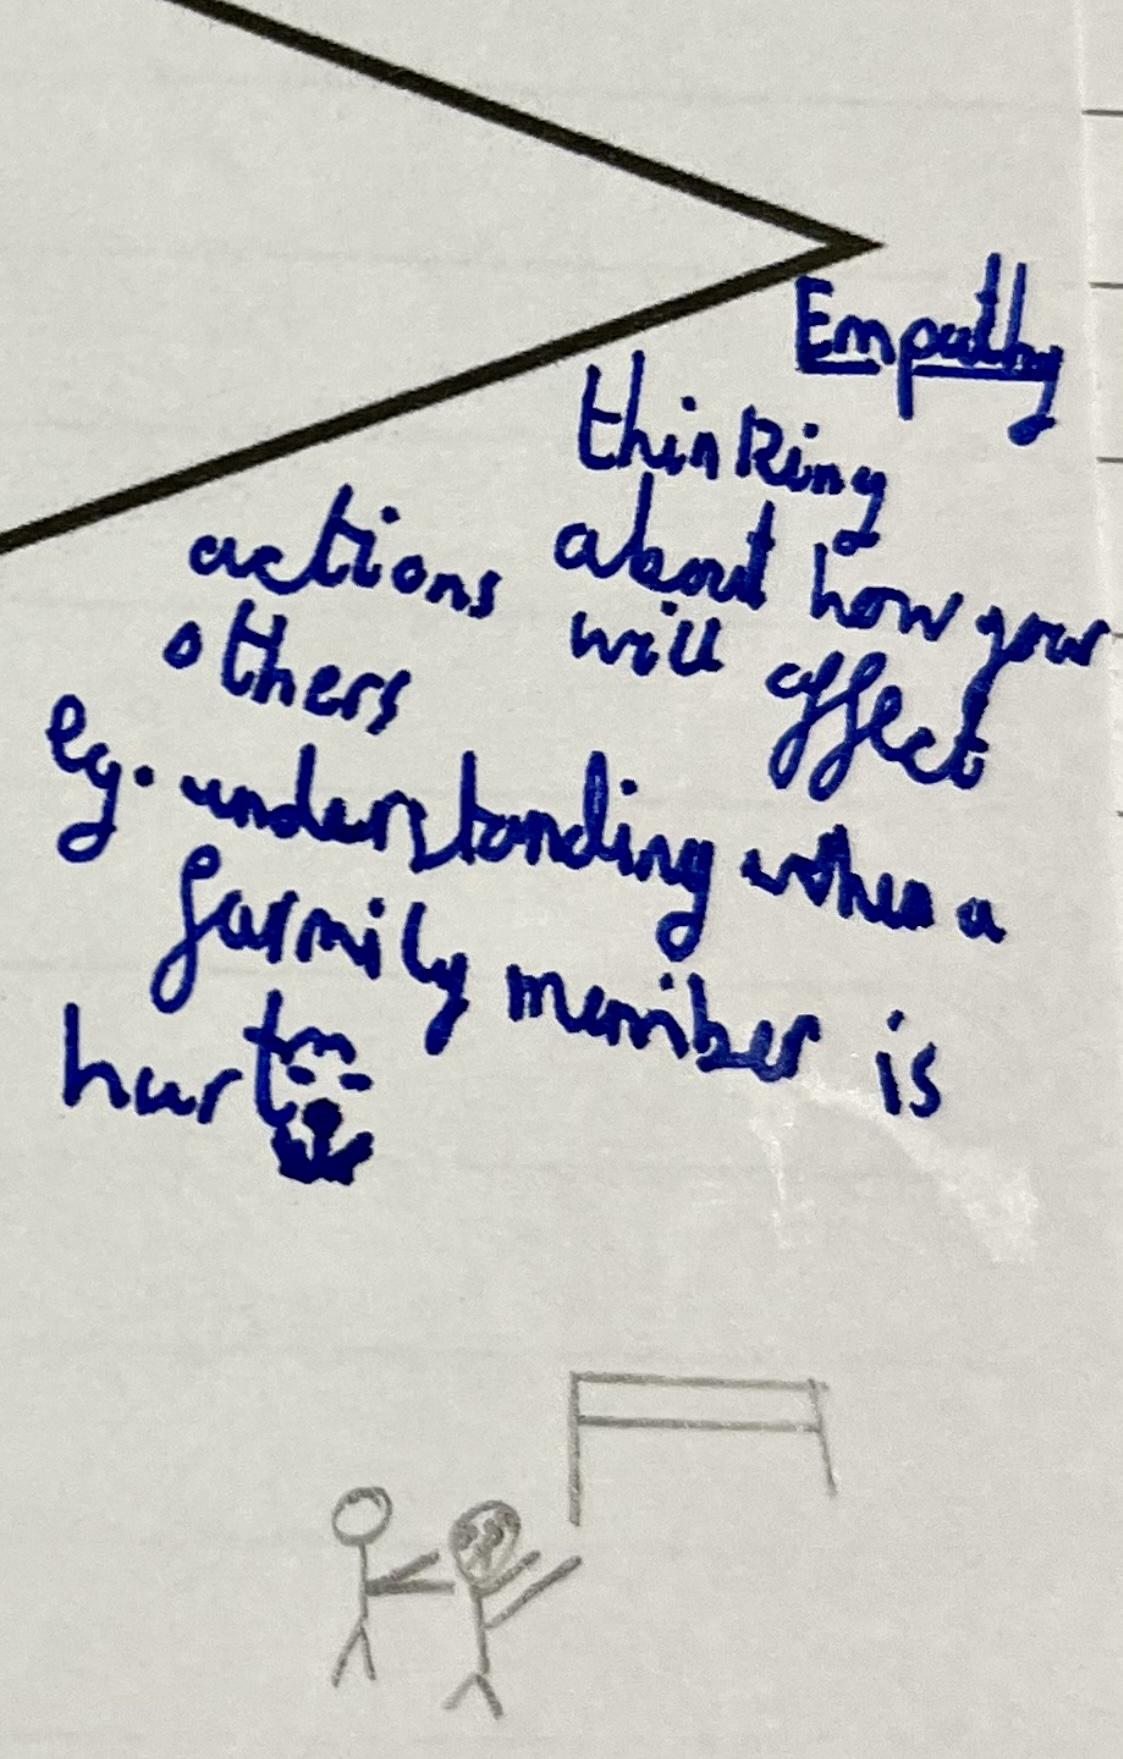 Empathy
thinking
about how your
actions will affect
others
eg. understanding when a
family member is
hurt